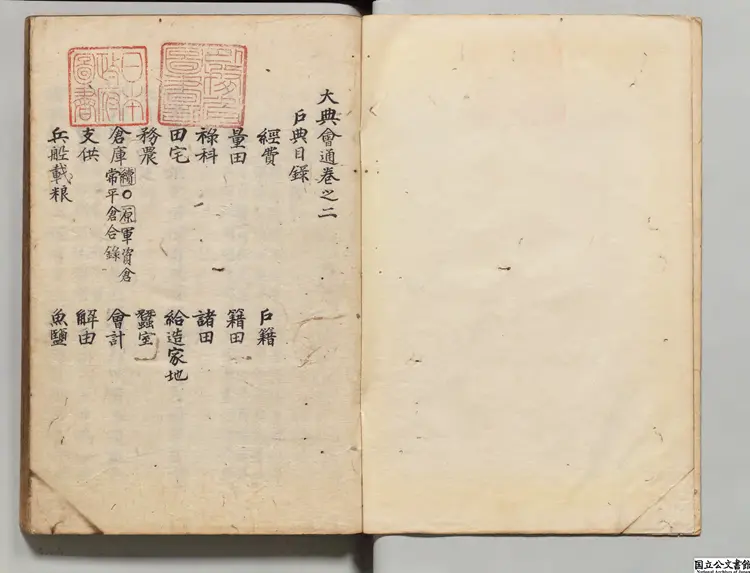 大典會通卷之二
戶典目錄
經費 戶籍
量田 籍田
祿科 諸田
田宅 給造家地
務農 蠶室
倉庫 續○原軍資倉常平倉合錄 會計
支供 解由
兵船載粮 魚鹽
日本政府圖書
国立公文書館
National Archives of Japan